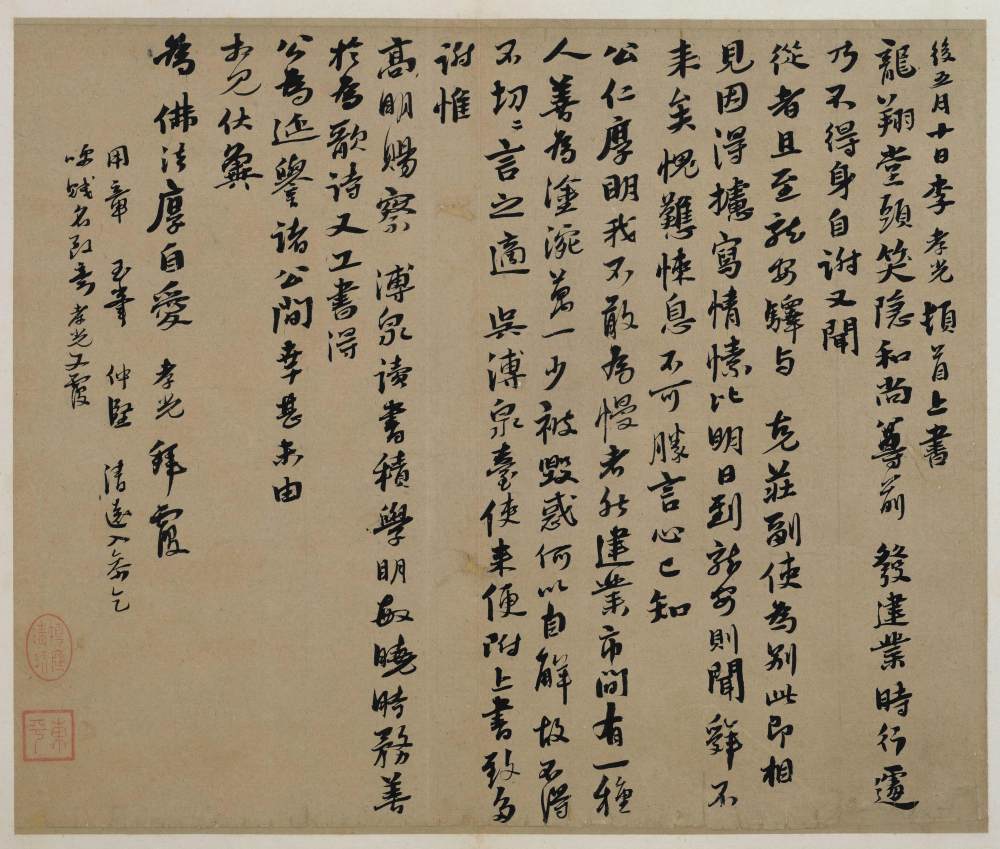 後五月十日李孝光頓首上書
龍翔堂頭笑隱和尚尊前 發建業時行遽
乃不得身自謝又聞
從者且至龍安驛與 克莊副使為別此即相
見因得攄寫情愫比明日到龍安則聞舜不
來矣愧難悚息不可勝言心已知
公仁厚明我不敢為慢者然建業市間有一種
人善為塗涴萬一少被毀惑何以自解故不得
不切〻言之適 吳溥泉臺使來便附上書致多
謝惟
高明賜察 溥泉讀書積學明敏曉時務善
於為歌詩又工書得
公為延譽諸公間幸甚未由
占見伏冀
為佛法厚自愛 孝光拜覆
用章 玉峯 仲堅 清遠
名 孝光又覆